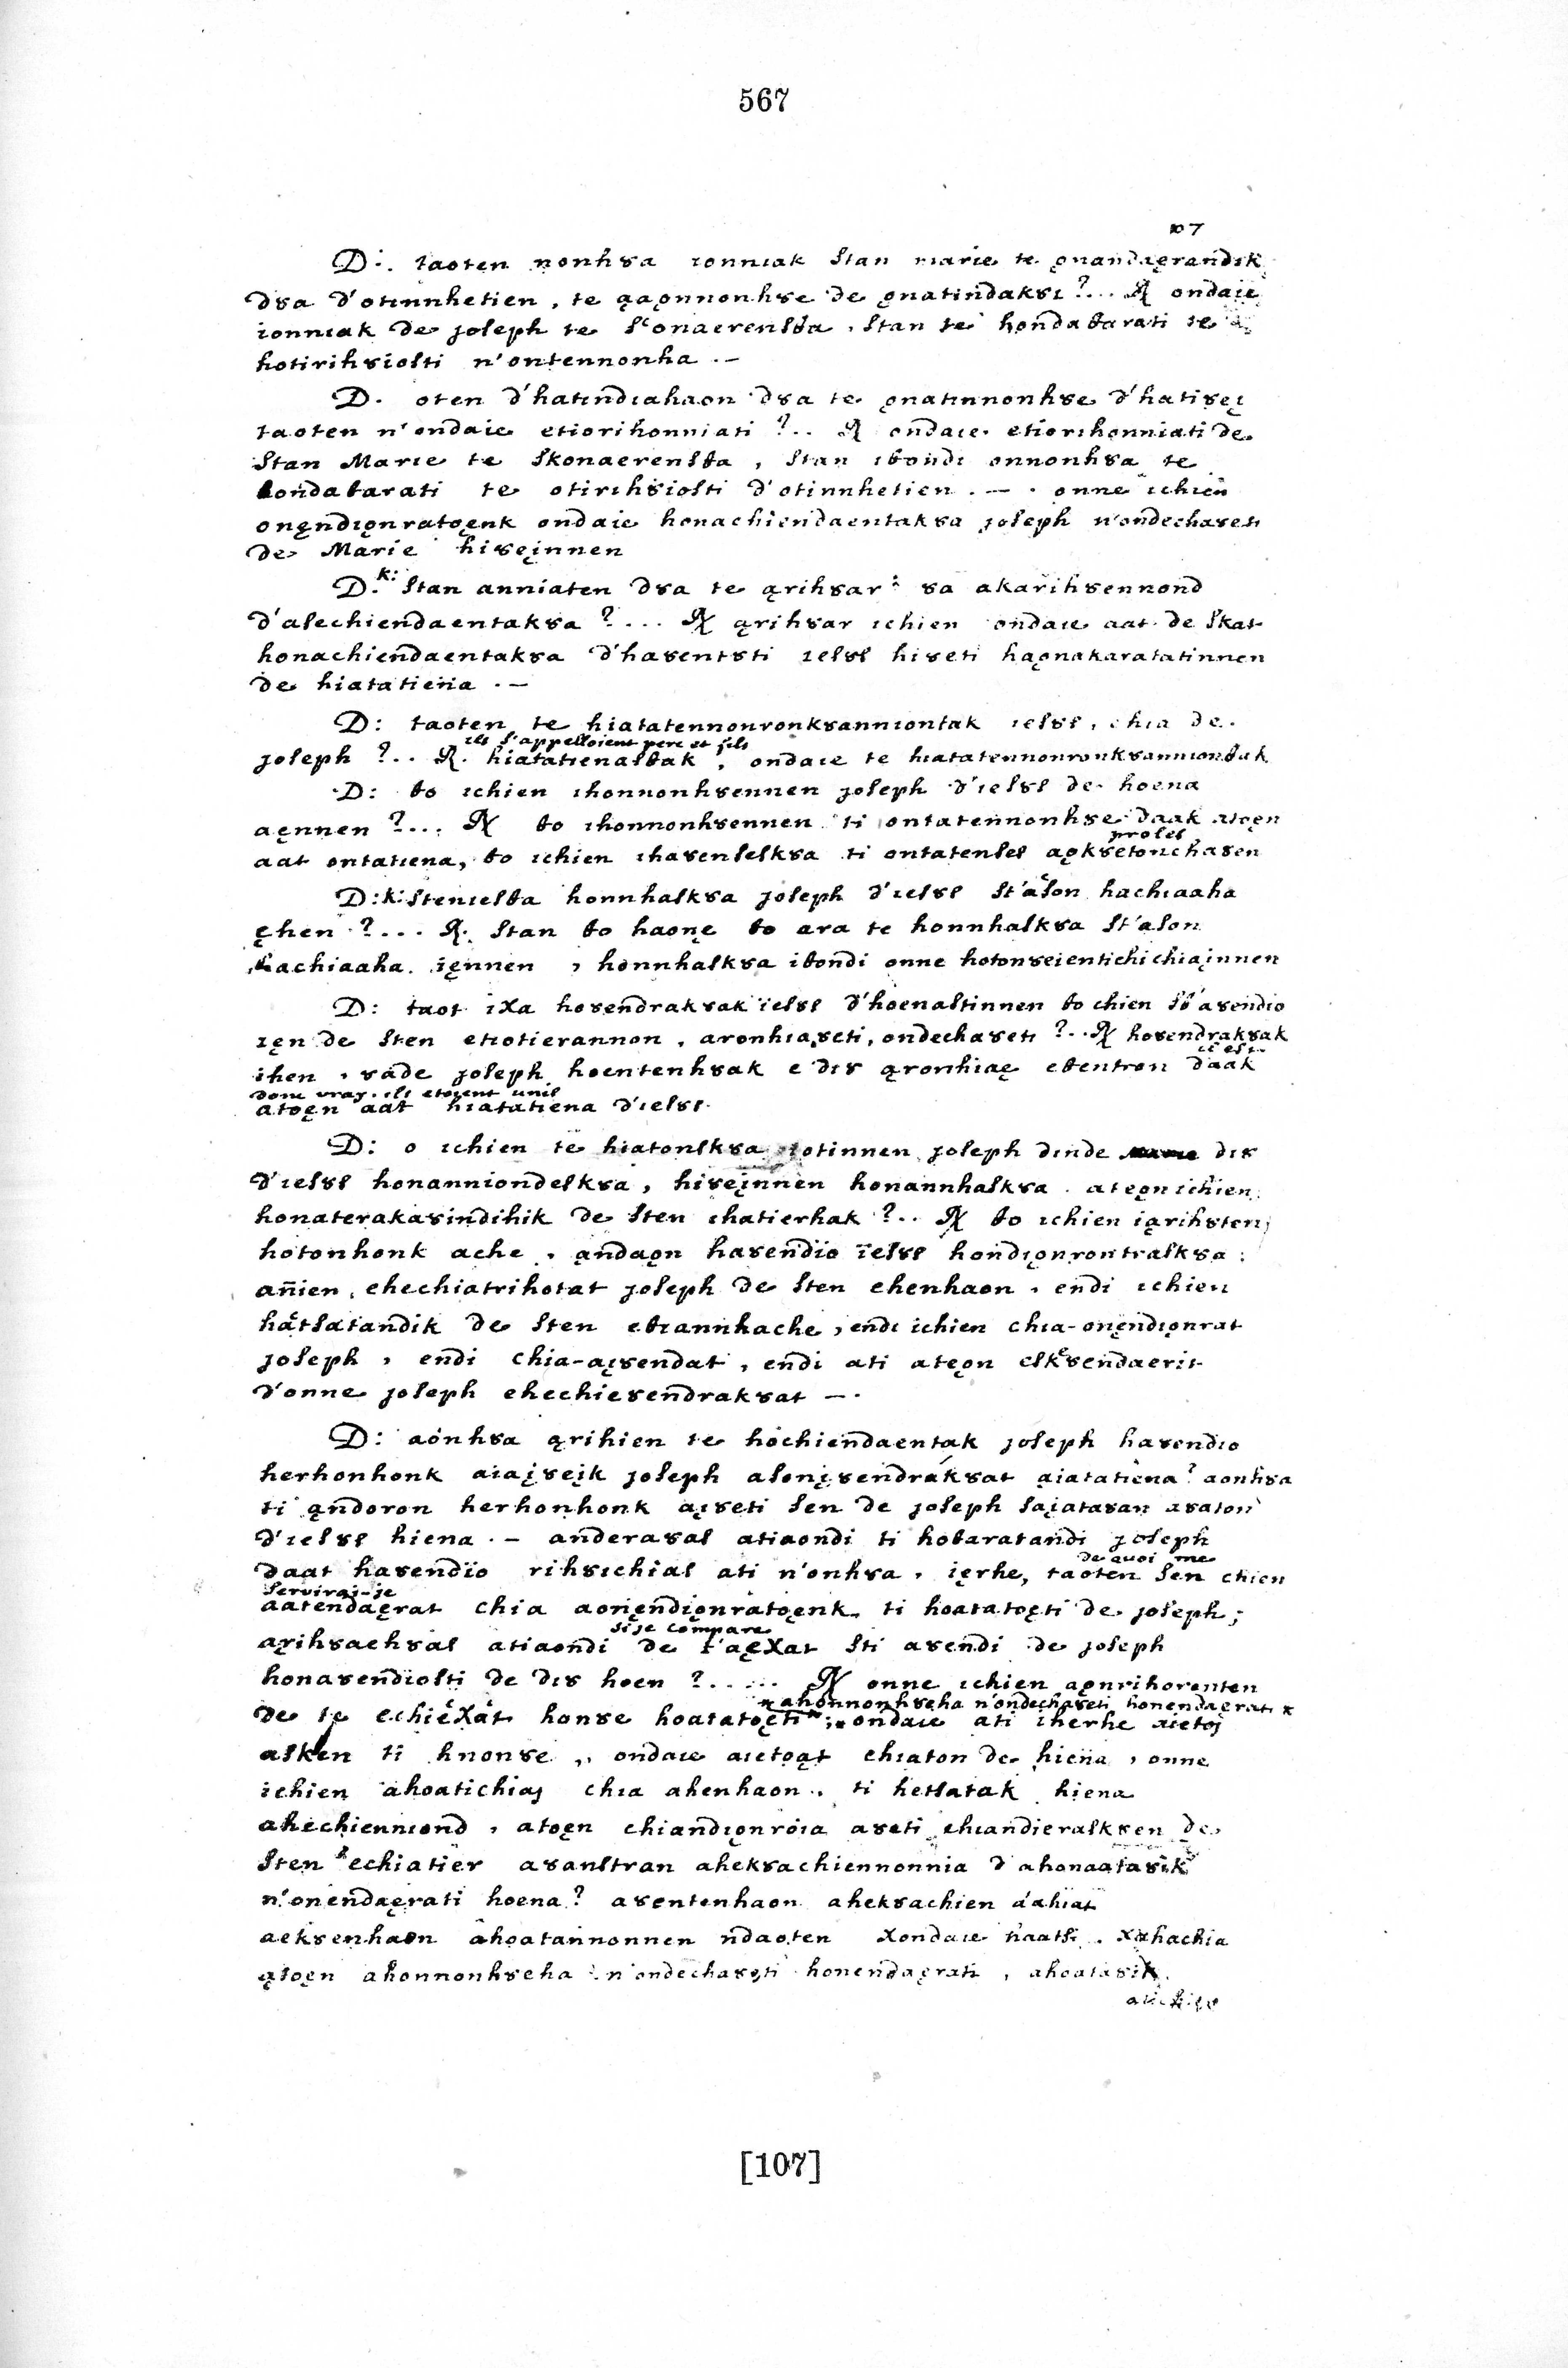 567
107
D:. taoten nonhȣa ionniak stan marie te ǫnandaęrandik
dȣa d'otinnhetien, te ąaǫnnonhȣe de ǫnatindakȣi?... ℟ ondaie
ionniak de joseph te sconaerensθa, stan te hondaθarati te
hotirihȣiosti n'ontennonha.—
D. oten d'hatindiahaon dȣa te ǫnatinnonhȣe d'hatiȣeį
taoten n'ondaie etiorihonniati?.. ℟ ondaie etiorihonniati de
stan Marie te skonaerensθa, stan iθondi onnonhȣa te
hondaθarati te otirihȣiosti d'otinnhetien.—. onne ichien
onęndiǫnratoęnk ondaie honachiendaentakȣa joseph n'ondechaȣeti
de Marie hiȣeįnnen
D.k: stan anniaten dȣa te ąrihȣar: ȣa akarihȣennond
d'asechiendaentakȣa?... ℟ ąrihȣar ichien ondaie aat de skat
honachiendaentakȣa d'haȣentȣti iesȣs hiȣeti haǫnakaratatinnen
de hiatatiena.—
D: taoten te hiatatennonronkȣanniontak iesȣs, chia de
ils s'appelloient pere et fils
joseph?.. ℟. hiatatienasθak, ondaie te hiatatennonronkȣannionθak
D: θo ichien ihonnonhȣennen joseph d'iesȣs de hoena
aęnnen?... ℟ θo ihonnonhȣennen ti ontatennonhȣe daak atoęn
proles
aat ontatiena, θo ichien ihaȣenseskȣa ti ontatenses aǫkȣetonchaȣen
D:k: steniesθa honnhaskȣa joseph d'iesȣs st'ason hachiaaha
ęhen?... ℟. stan θo haonę θo ara te honnhaskȣa st'ason
hachiaaha ięnnen, honnhaskȣa iθondi onne hotonȣeientichichiaįnnen
D: taot ixa hoȣendrakȣak iesȣs d'hoenastinnen θo chien sθ'aȣendio
ięn de sten etiotierannon, aronhiaȣeti, ondechaȣeti?.. ℟ hoȣendrakȣak
c'est
ihen, ȣade joseph hoentenhȣak e diȣ ąronhiaę eθentron daak
donc vray. ils etoient unis
atoęn aat hiatatiena d'iesȣs.
D: o ichien te hiatonskȣa iotinnen joseph dinde diȣ
d'iesȣs honanniondeskȣa, hiȣeįnnen honannhaskȣa. ateǫn ichien
honaterakaȣindihik de sten ihatierhak?.. ℟ θo ichien iąrihȣten
hotonhonk ache, ąndaǫn haȣendio iesȣs hondiǫnrontraskȣa:
annien, ehechiatrihotat joseph de sten ehenhaon, endi ichien
hatsatandik de sten eθiannhache, endi ichien chia-onęndiǫnrat
joseph, endi chia-aįȣendat, endi ati ateǫn eskȣendaerit
d'onne joseph ehechieȣendrakȣat —.
D: aonhȣa ąrihien te hochiendaentak joseph haȣendio
herhonhonk aiaįȣeįk joseph asonįȣendrakȣat ąiatatiena? aonhȣa
ti ąndoron herhonhonk aįȣeti sen de joseph saįataȣan aȣaton
d'iesȣs hiena.— anderaȣas atiaondi ti hoθaratandi joseph
de quoi me
daat haȣendio rihȣichias ati n'onhȣa, ięrhe, taoten sen chien
servirai-je
aatendaęrat chia aonęndiǫnratoęnk ti hoatatoęti de joseph;
si je compare
ąrihȣaehȣas atiaondi de t'aęxat sti aȣendi de joseph
honaȣendiosti de diȣ hoen?..... ℟ onne ichien aǫnrihorenten
ahonnonhȣeha n'ondechaȣeti honendaęrati
de te echiexat honȣe hoatatoęti; ondaie ati iherhe aietoį
asken ti hnonȣe, ondaie aietoąt chiaton de hiena, onne
ichien ahoatichiaį chia ahenhaon, ti hetsatak hiena
ahechienniond, atoęn chiandiǫnroia aȣeti chiandieraskȣen de
sten echiatier aȣanstran ahekȣachiennonnia d'ahonaataȣik
n'onendaęrati hoena? aȣentenhaon ahekȣachien d'ahiat
aekȣenhaon ahoatannonnen ndaoten xondaie haatsi. xahachia
ątoęn ahonnonhȣeha n'ondechaȣeti honendaęrati, ahoataȣik
[107]